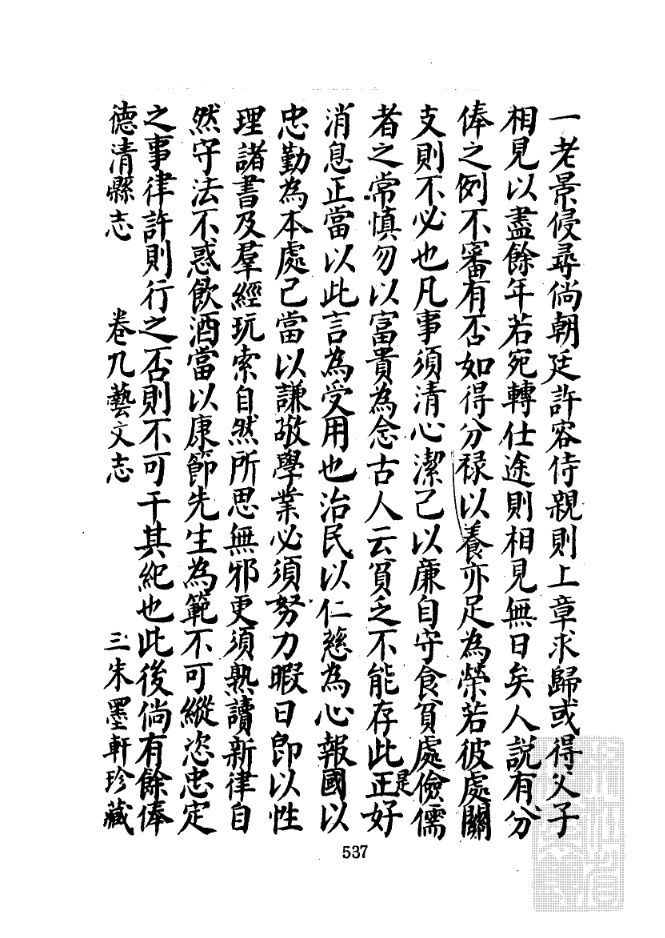 一老景侵尋倘朝廷許容侍親則上章求歸或得父子
相見以盡餘年若宛轉仕途則相見無日矣人說有分
俸之例不審有否如得分祿以養亦足為榮若彼處關
支則不必也凡事須清心潔己以廉自守食貧處儉儒
者之常慎勿以富貴為念古人云貧乏不能存此是正好
消息正當以此言為受用也治民以仁慈為心報國以
忠勤為本處己當以謙敬學業必須努力暇日即以性
理諸書及羣經玩索自然所思無邪更須熟讀新律自
然守法不惑飲酒當以康節先生為範不可縱恣忠定
之事律許則行之否則不可干其紀也此後倘有餘俸
德清縣志 卷九藝文志 三朱墨軒珍藏
537